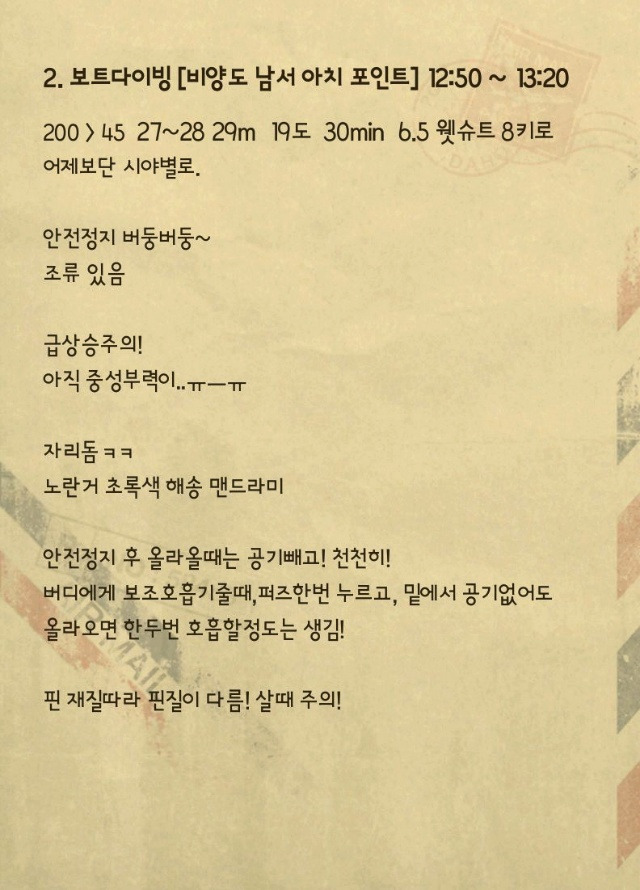 2. 보트다이빙 [비양도 남서 아치 포인트] 12:50 ~ 13:20
200 > 45 27~28 29m 19도 30min 6.5 웻슈트 8키로
어제보단 시야별로.
안전정지 버둥버둥~
조류 있음
급상승주의!
아직 중성부력이..ㅠㅡㅠ
자리돔 ㅋㅋ
노란거 초록색 해송 맨드라미
안전정지 후 올라올때는 공기빼고! 천천히!
버디에게 보조호흡기줄때,퍼즈한번 누르고, 밑에서 공기없어도
올라오면 한두번 호흡할정도는 생김!
핀 재질따라 핀질이 다름! 살때 주의!